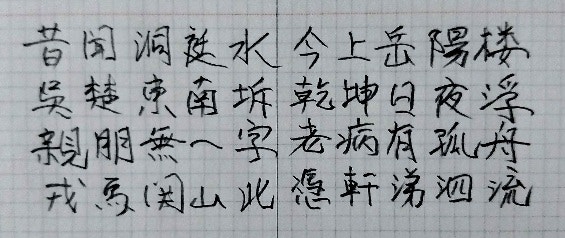 昔聞洞庭水 今上岳陽楼
吳楚東南坼 乾坤日夜浮
親朋無一字 老病有孤舟
戎馬関山北 憑軒涕泗流